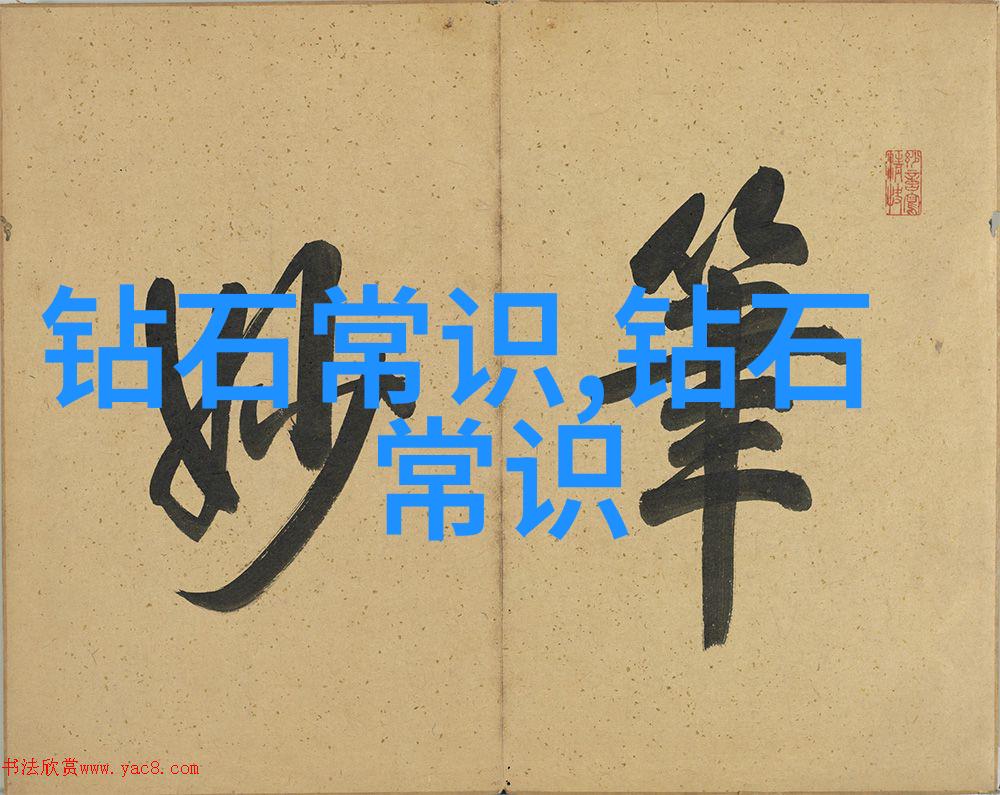 钻石常识,钻石
常识
筆妙
书法欣赏www.yac8.com